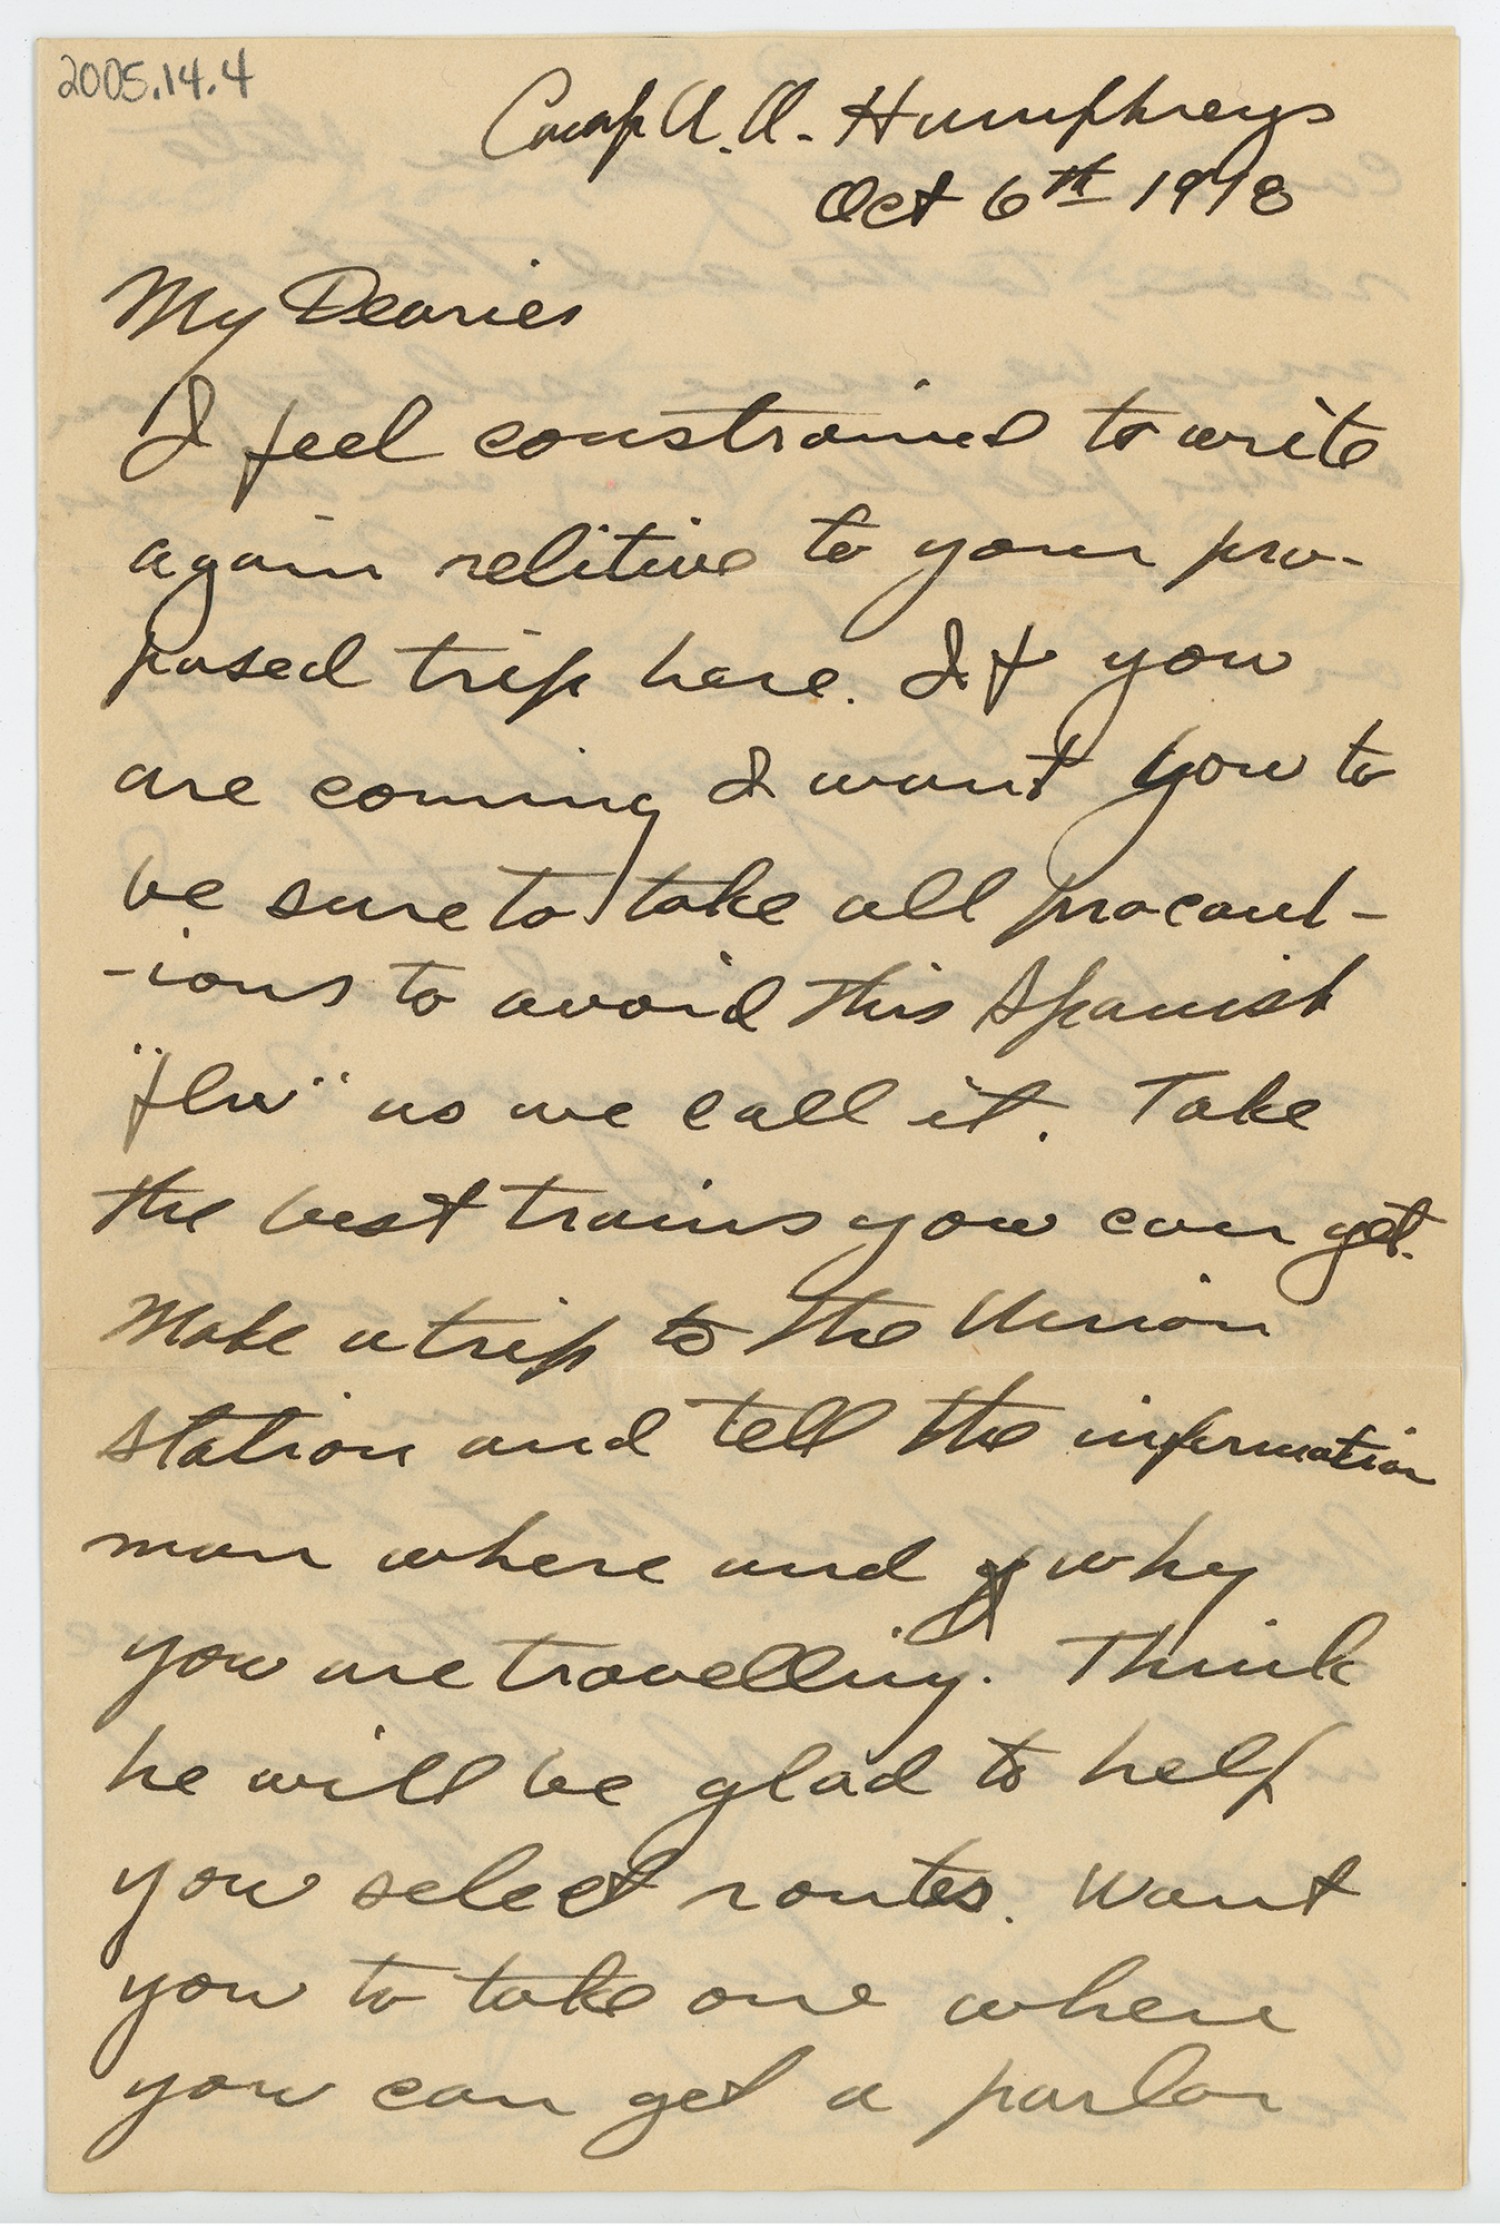 2005.14.4
Camp A. A. Humphreys
Oct 6th 1918
My Dearies
I feel constrained to write
again relitive to your pro-
posed trip here. If you
are coming I want you to
be sure to take all procaut-
-ions to avoid this Spanish
"flu" as we call it. Take
the best trains you can get.
Make a trip to the Union
station and tell the information
man where and why
you are travelling. Think
he will be glad to help
you select routes. Want
you to take one where
you can get a parlor